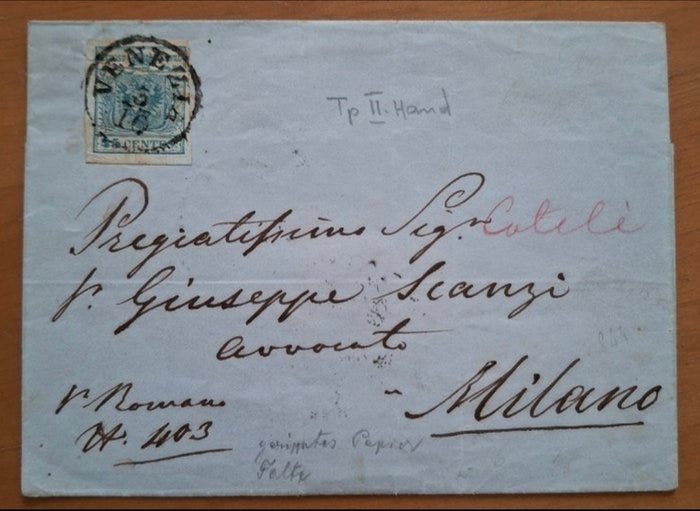 VENEZIA
45 CENTES
Tp II. Hand
Pregiatissimo Sigr.
Giuseppe Scanzi
avvocato
Milano
Romano
N. 403
geripptes Papier
Falte